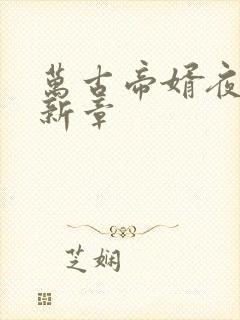 萬古帝婿夜
新章
芝娴